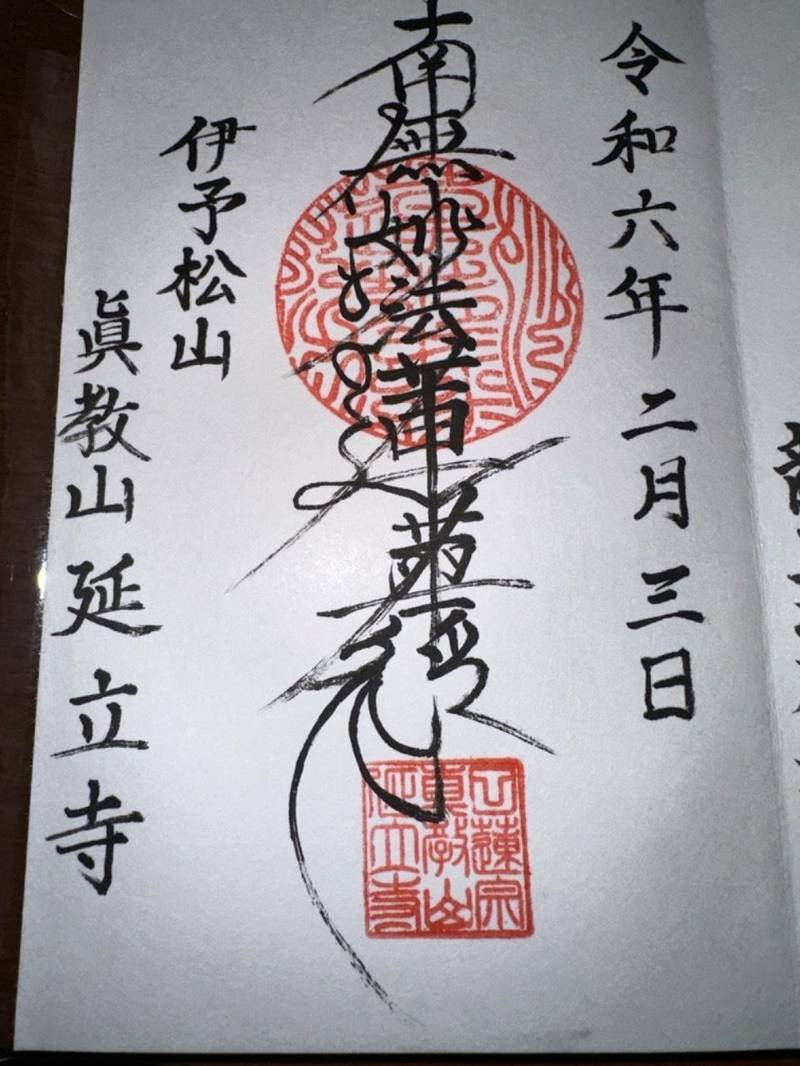 令和六年二月三日
南無妙法蓮華經
伊予松山
眞教山延立寺
日蓮宗
眞教山
延立寺